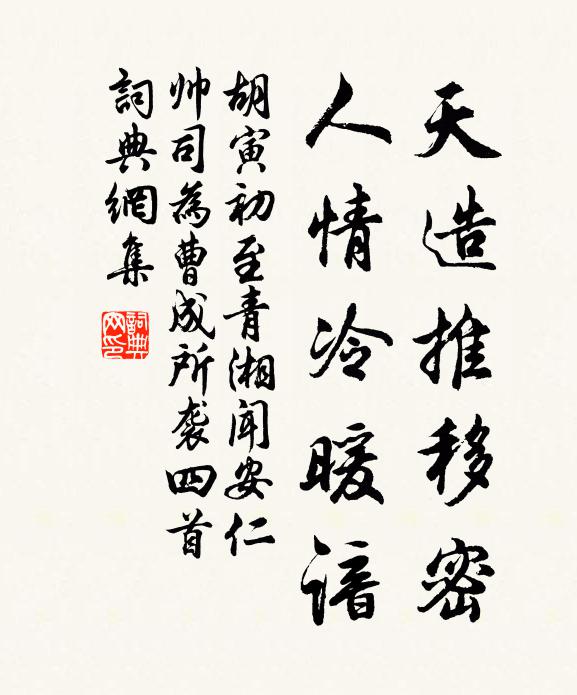 天造推移密
人情冷暖谙
胡寅初至青湘闻安仁
帅司為曹成所袭四首
詞典網集
詞典网印